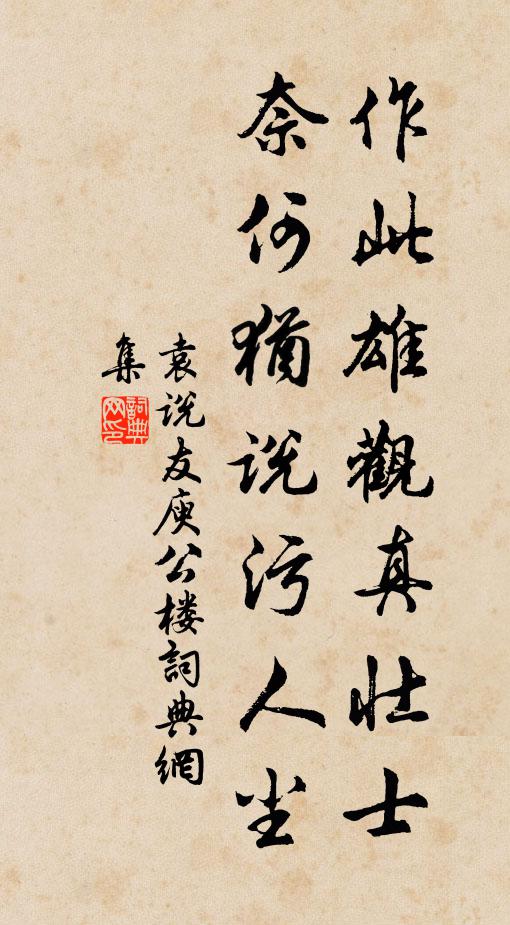 作此雄觀真壯士
奈何猶説污人尘
袁説友庾公楼詞典網
集
詞典网印